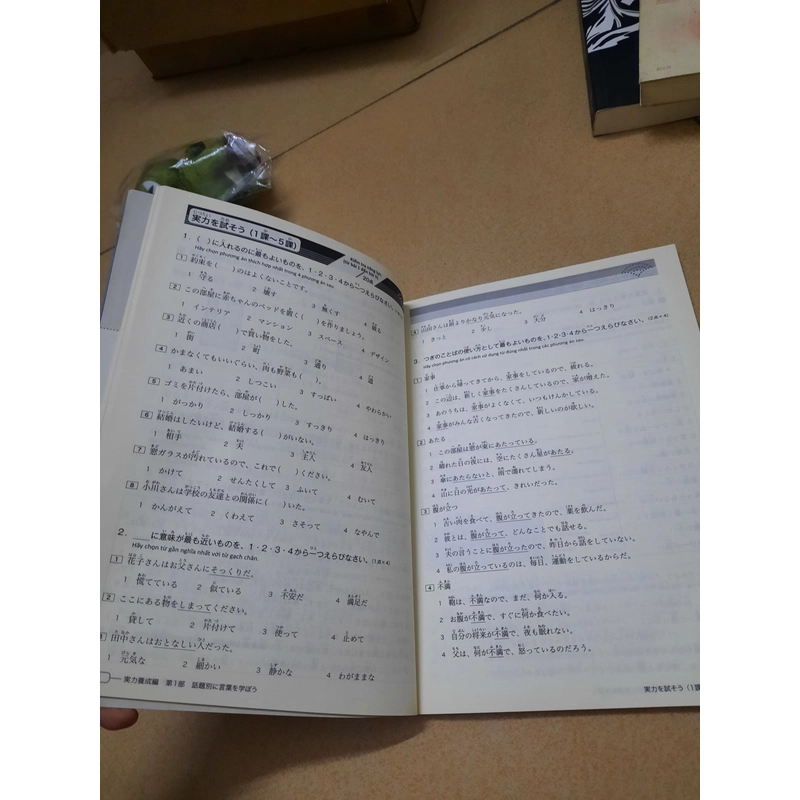 実力を試そう(1課〜5課)
20点
1. ( )に入れるのに最もよいものを、1・2・3・4から一つえらびなさい。
Hãy chọn phương án thích hợp nhất trong 4 phương án sau.
1 約束を( )のはよくないことです。
1 守る 2 壊す 3 無くす 4 破る
2 この部屋に赤ちゃんのベッドを置く( )を作りましょう。
1 インテリア 2 マンション 3 スペース 4 デザイン
3 近くの商店( )で買い物をした。
1 街 2 町 3 通り 4 道
4 かまなくてもいいぐらい、肉も野菜も( )。
1 あまい 2 しつこい 3 すっぱい 4 やわらかい
5 ゴミを片付けたら、部屋が( )した。
1 がっかり 2 しっかり 3 すっきり 4 はっきり
6 結婚はしたいけど、結婚する( )がいない。
1 相手 2 夫 3 主人 4 友人
7 窓ガラスが汚れているので、これで( )ください。
1 かけて 2 せんたくして 3 ふいて 4 むいて
8 小川さんは学校の友達との関係に( )いた。
1 かんがえて 2 くわえて 3 さそって 4 なやんで
2. ___に意味が最も近いものを、1・2・3・4から一つえらびなさい。(1点×4)
Hãy chọn từ gần nghĩa nhất với từ gạch chân.
1 花子さんはお父さんにそっくりだ。
1 慌てている 2 似ている 3 不安だ 4 満足だ
2 ここにある物をしまってください。
1 貸して 2 片付けて 3 使って 4 止めて
田中さんはおとなしい人だった。
1 元気な 2 細かい 3 静かな 4 わがままな
実力養成編 第1部 話題別に言葉を学ぼう
4 山田さんは前よりかなり元気になった。
1 きっと 2 少し 3 大分 4 はっきり
3. つぎのことばの使い方として最もよいものを、1・2・3・4から一つえらびなさい。(2点×4)
Hãy chọn phương án có cách sử dụng từ đúng nhất trong các phương án sau.
1 家事
1 仕事から帰ってきてから、家事をしているので、疲れる。
2 この辺は、新しく家事をたくさんしているので、家が増えた。
3 あのうちは、家事がよくなくて、いつもけんかしている。
4 家事がみんな古くなってきたので、新しいのが欲しい。
2 あたる
1 この部屋は窓が東にあたっている。
2 晴れた日の夜には、空にたくさん星があたる。
3 傘にあたらないと、雨で濡れてしまう。
4 山に日の光があたって、きれいだった。
3 腹が立つ
1 古い肉を食べて、腹が立ってきたので、薬を飲んだ。
2 彼とは、腹が立って、どんなことでも話せる。
3 夫の言うことに腹が立ったので、昨日から話をしていない。
4 私の腹が立っているのは、毎日、運動をしているからだ。
4 不満
1 鞄は、不満なので、まだ、何か入る。
2 お腹が不満で、すぐに何か食べたい。
3 自分の将来が不満で、夜も眠れない。
4 父は、何が不満で、怒っているのだろう。
実力を試そう(1課